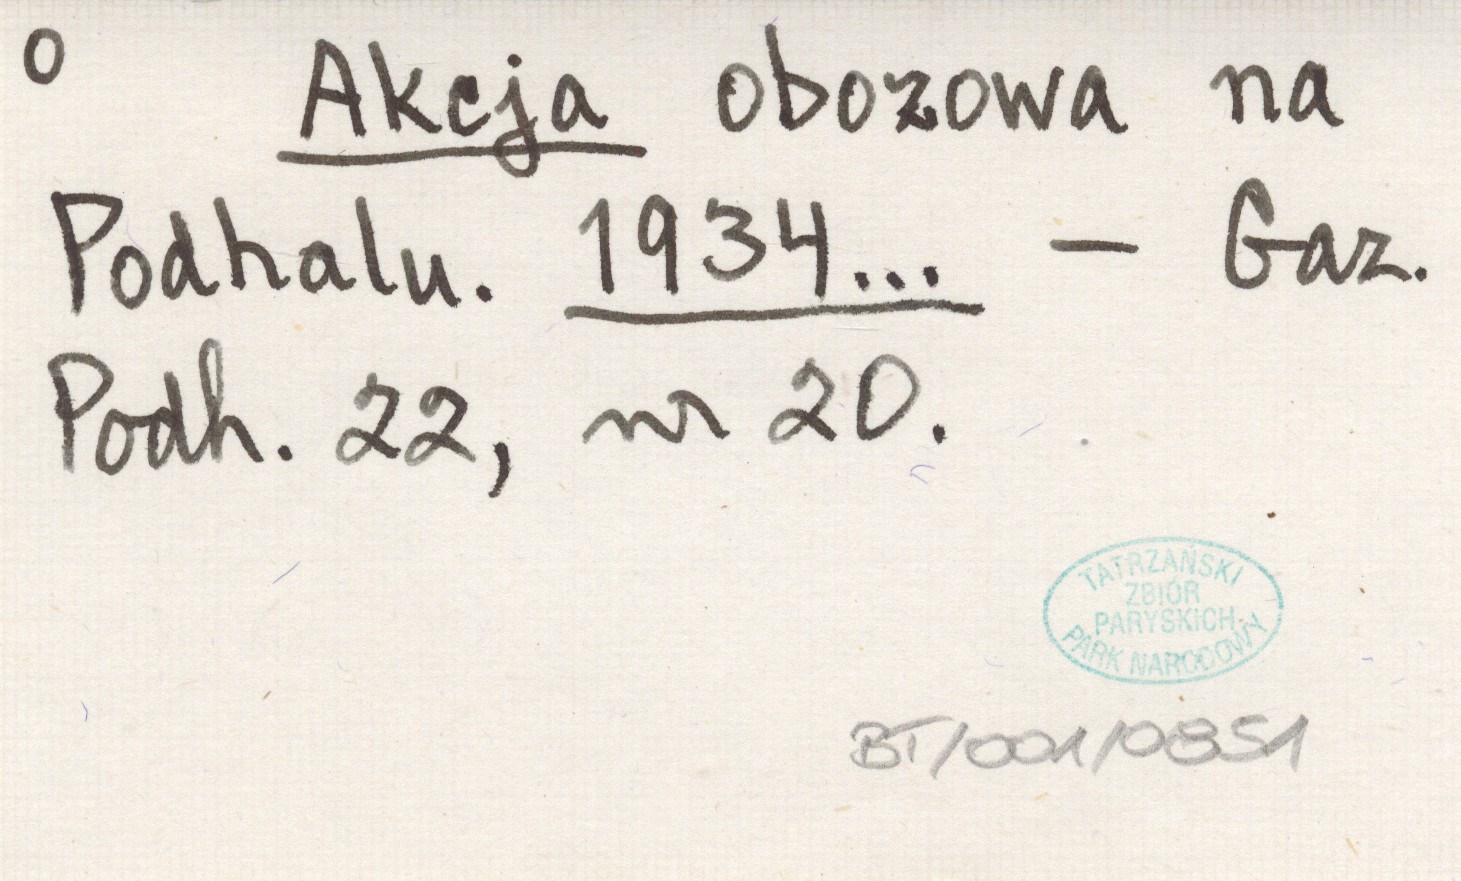 o Akcja obozowa na
Podhalu. 1934... — Gaz.
Podh. 22, nr 20.
TATRZAŃSKI
ZBIÓR
PARYSKICH
PARK NARODOWY
BT/001/0851